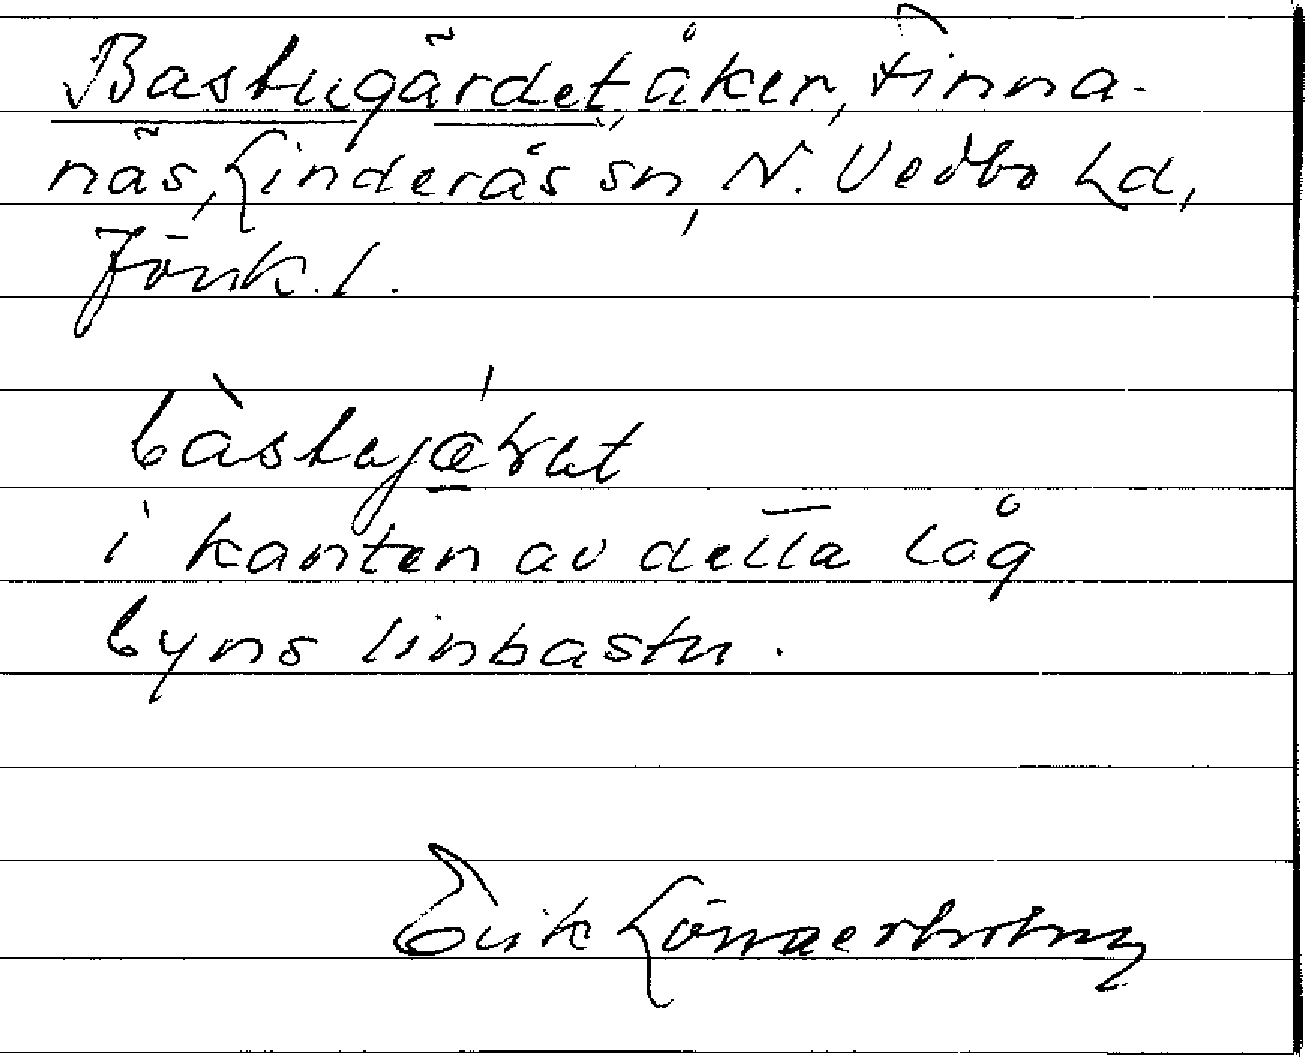 Bastugärdet, åker, Finna-
näs, Linderås sn, N. Vedbo hd,
Jönk. l.
bàstujǽ
i kanten av detta låg
byns linbastu.
Erik Lönnerholm